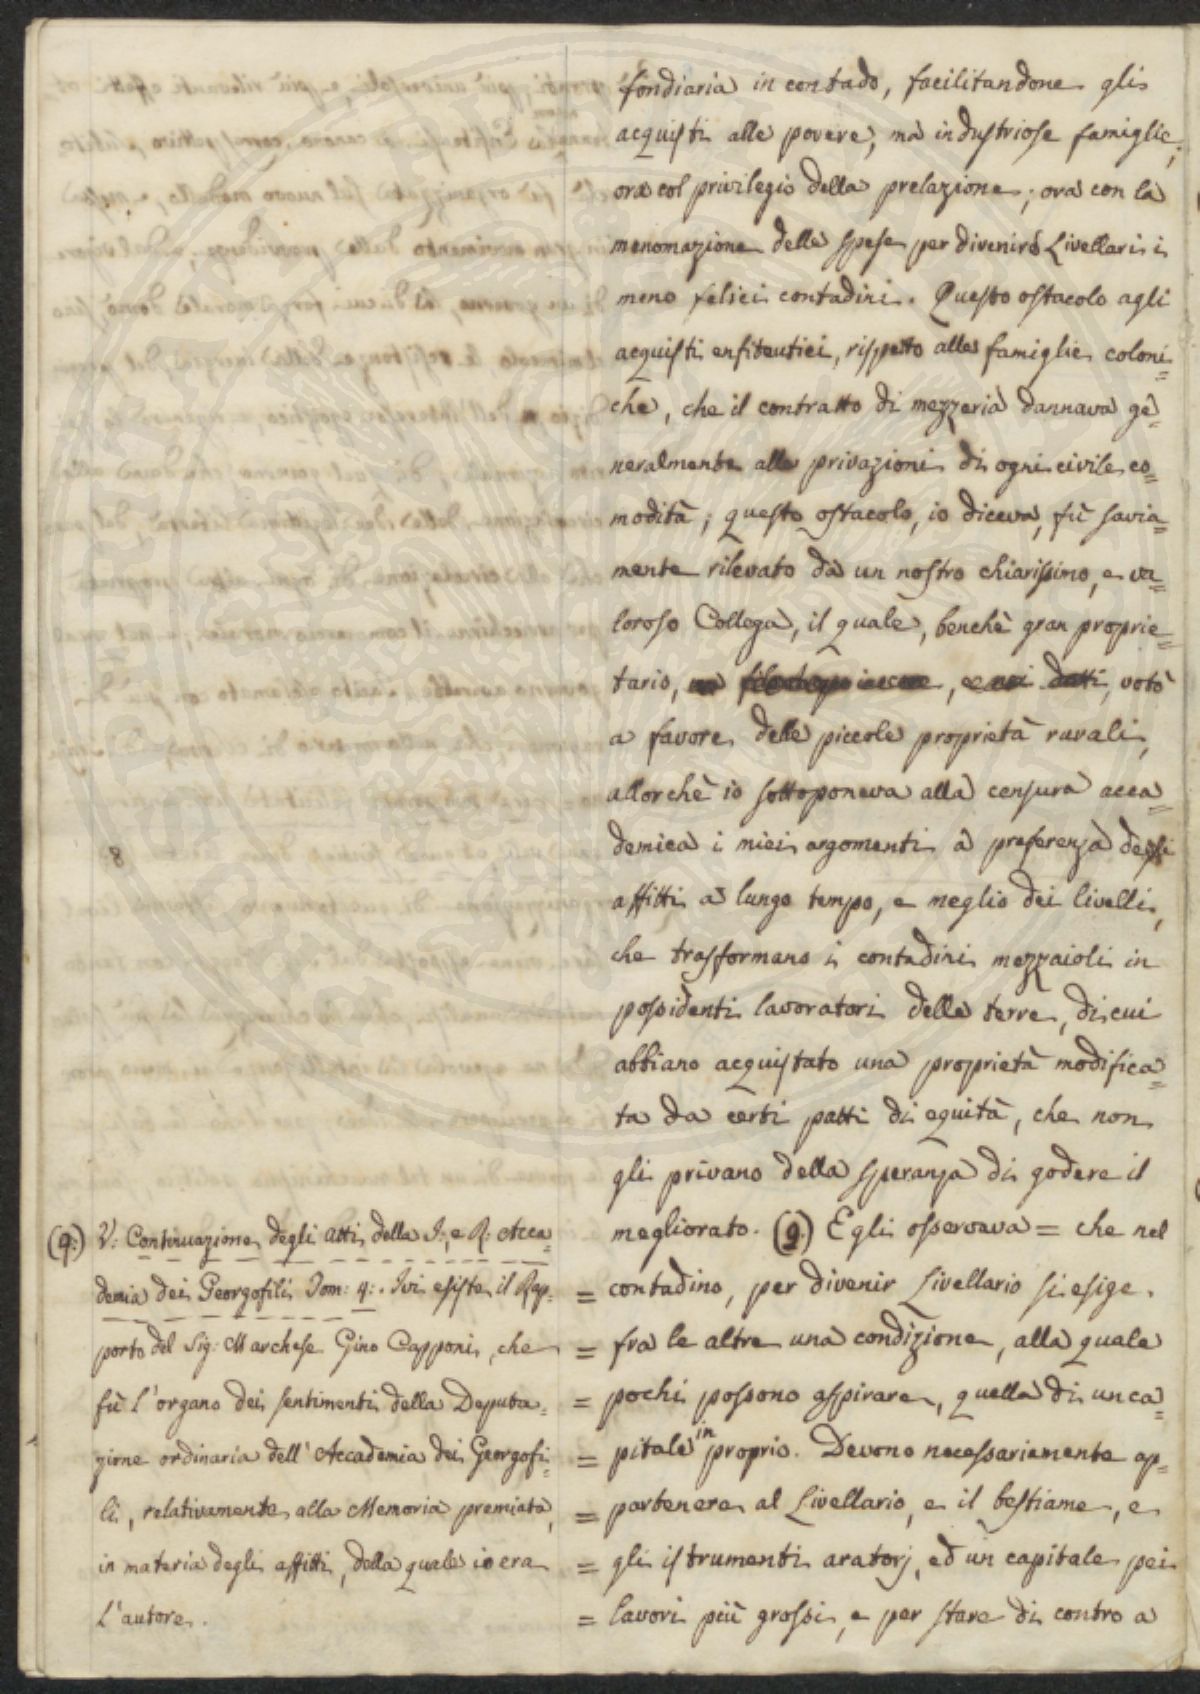 fondiaria in contado, facilitandone gli
acquisti alle povere, ma industriose famiglie,
ora col privilegio della prelazione; ora con la
menomazione delle spese per divenire Livellari i
meno felici contadini. Questo ostacolo agli
acquisti enfiteutici, rispetto alle famiglie coloni=
che, che il contratto di mezzeria dannava ge=
neralmente alle privazioni di ogni civile co=
modità; questo ostacolo, io diceva, fù savia=
mente rilevato da un nostro chiarissimo, e va=
loroso Collega, il quale, benchè gran proprie=
tario, votò
a favore delle piccole proprietà rurali,
allorchè io sottoponeva alla censura acca=
demica i miei argomenti a preferenza degli
affitti a lungo tempo, e meglio dei livelli,
che trasformano i contadini mezzaioli in
possidenti lavoratori delle terre, di cui
abbiano acquistato una proprietà modifica=
ta da certi patti di equità, che non
gli privano della speranza di godere il
megliorato. (9.) Egli osservava = che nel
= contadino, per divenir Livellario si esige.
= fra le altre una condizione, alla quale
= pochi possono aspirare, quella di un ca=
= pitale in proprio. Devono necessariamente ap=
= partenere al Livellario, e il bestiame, e
= gli istrumenti aratorj, ed un capitale pei
= lavori più grossi, e per stare di contro a
8
(9.) V: Continuazione degli atti della I: e R: Acca=
demia dei Georgofili Tom: 4: Ivi esiste il Rap=
porto del Sig: Marchese Gino Capponi, che
fù l'organo dei sentimenti della Deputa=
zione ordinaria dell'Accademia dei Georgofi=
li, relativamente alla Memoria premiata,
in materia degli affitti, della quale io era
l'autore.